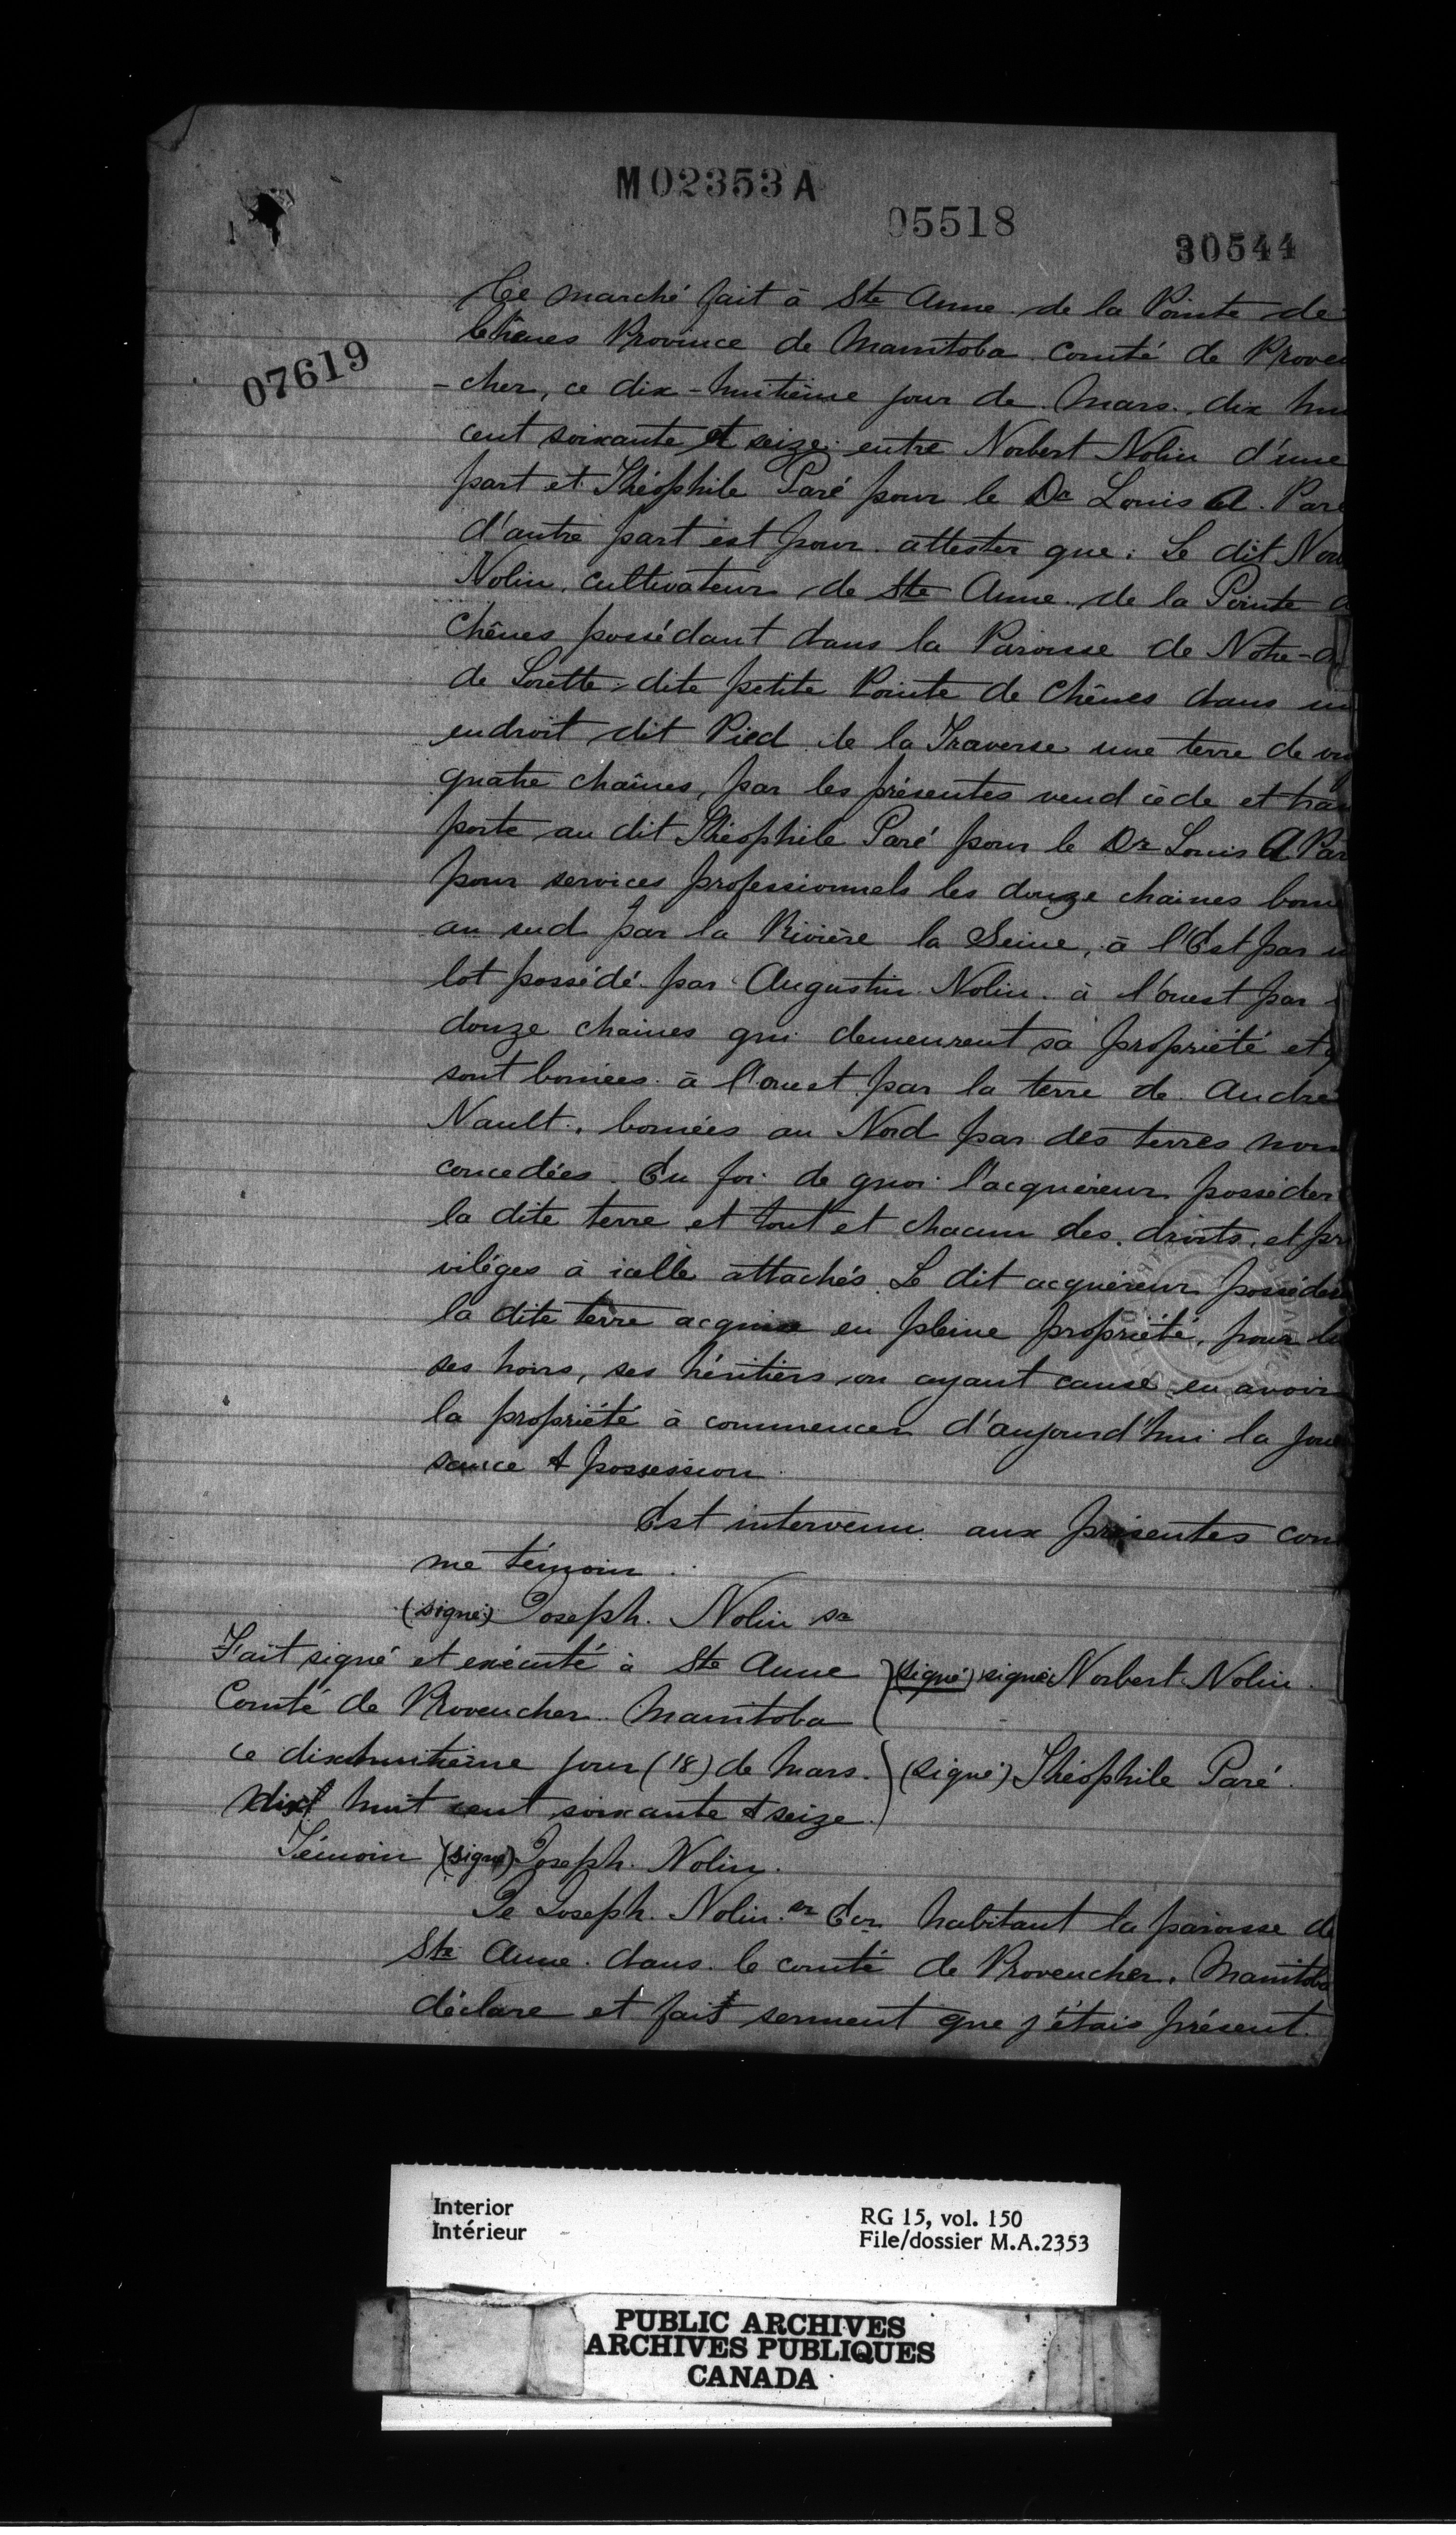 M02353A
05518
30544
07619
Ce marché fait à Ste Anne de la Pointe de
Chênes Province de Manitoba comté de Proven
-cher, ce dix-huitième jour de Mars dix hu
cent soixante et seize entre Norbert Nolin d'une
part et Théophile Paré pour le Dr Louis A. Paré
d'autre part est pour attester que: Le dit Nor
Nolin cultivateur de Ste Anne de la Pointe d
Chênes possédant dans la Paroisse de Notre-D
de Lorette dite petite Pointe de Chênes dans un
endroit dit Pied de la Traverse une terre de vi
quatre chaînes, par les présentes vend cède et tran
porte au dit Théophile Paré pour le Dr Louis A Par
pour services professionnels les douze chaines born
au sud par la Rivière la Seine, à l'Est par u
lot possédé par Augustin Nolin à l'ouest par
douze chaines qui demeurent sa propriété et q
sont bornées à l'ouest par la terre de André
Nault, bornées au Nord par des terres non
concedées. En foi de quoi l'acquéreur posséder
la dite terre et tout et chacun des droits et pri
viléges à icelle attachés. Le dit acquéreur posséder
la dite terre acquise en pleine propriété, pour lu
ses hoirs, ses héritiers ou ayant cause en avoir
la propriété à commencer d'aujourd'hui la joui
sance & possession.
Est intervenu aux présentes com
me témoin.
(signé) Joseph Nolin sr
Fait signé et exécuté à Ste Anne (signé) signé Norbert Nolin.
Comté de Provencher Manitoba
ce dixhuitième jour (18) de Mars. (signé) Théophile Paré.
dix huit cent soixante & seize.
Témoin (signé) Joseph Nolin.
Je Joseph Nolin sr Ecr habitant la paroisse de
Ste Anne dans le comté de Provencher, Manitoba
déclare et fait serment que j'étais présent.
Interior
Intérieur
RG 15, vol. 150
File/dossier M.A.2353
PUBLIC ARCHIVES
ARCHIVES PUBLIQUES
CANADA